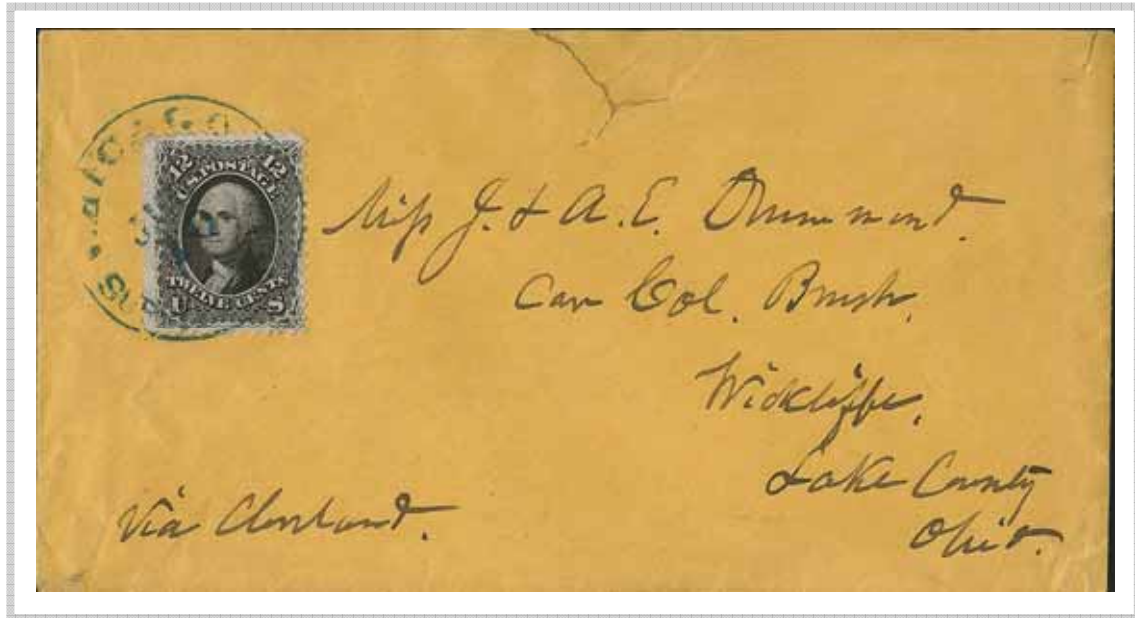 CHICAGO ILLS
12 12
U.S. POSTAGE
TWELVE CENTS
U S
Miss J. & A. E. Drummond.
Care Col. Brush,
Wickliffe,
Lake County
Ohio.
Via Cleveland.